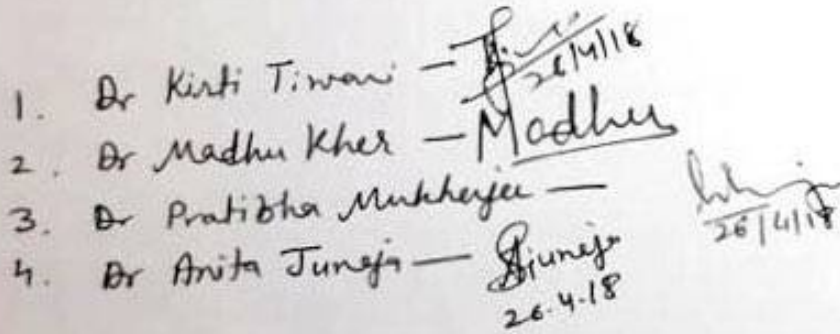 1. Dr Kirti Tiwari — 26/4/18
2. Dr Madhu Kher — Madhu
3. Dr Pratibha Mukherjee — 26/4/18
4. Dr Anita Juneja — Ajuneja
26.4.18